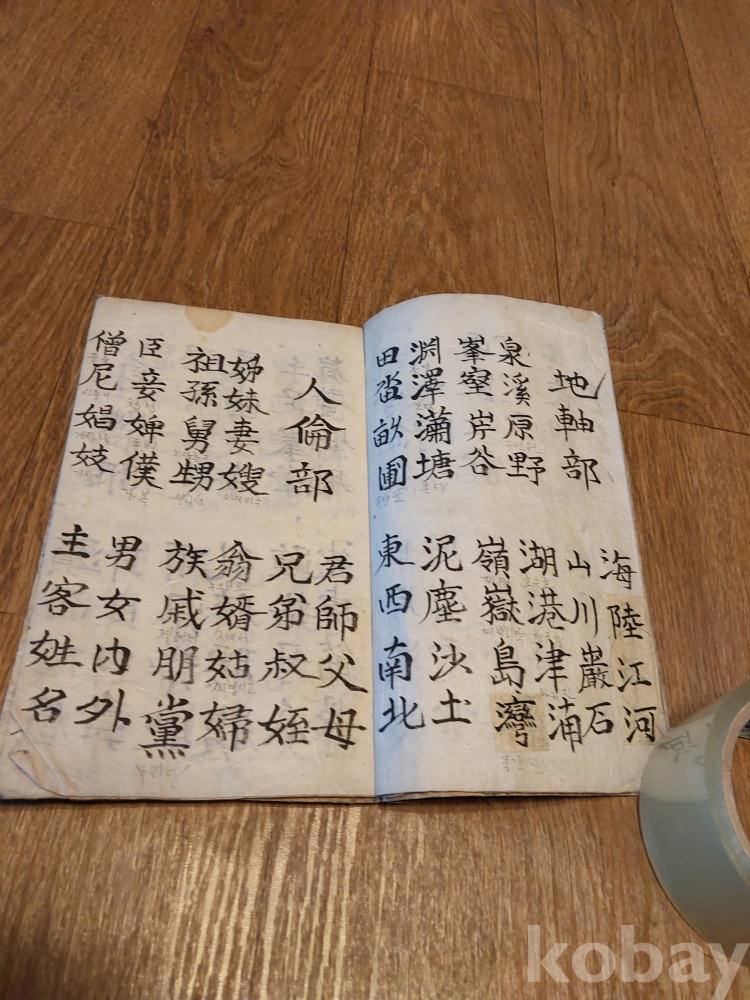 地軸部
海陸江河
山川巖石
泉溪原野
湖港津浦
峯壑岸谷
嶺嶽島灣
渊澤瀟塘
泥塵沙土
田畓畝圃
東西南北
人倫部
君師父母
兄弟叔姪
姊妹妻嫂
翁婿姑婦
祖孫舅甥
族戚朋黨
臣妾婢僕
男女内外
僧尼娼妓
主客姓名
kobay